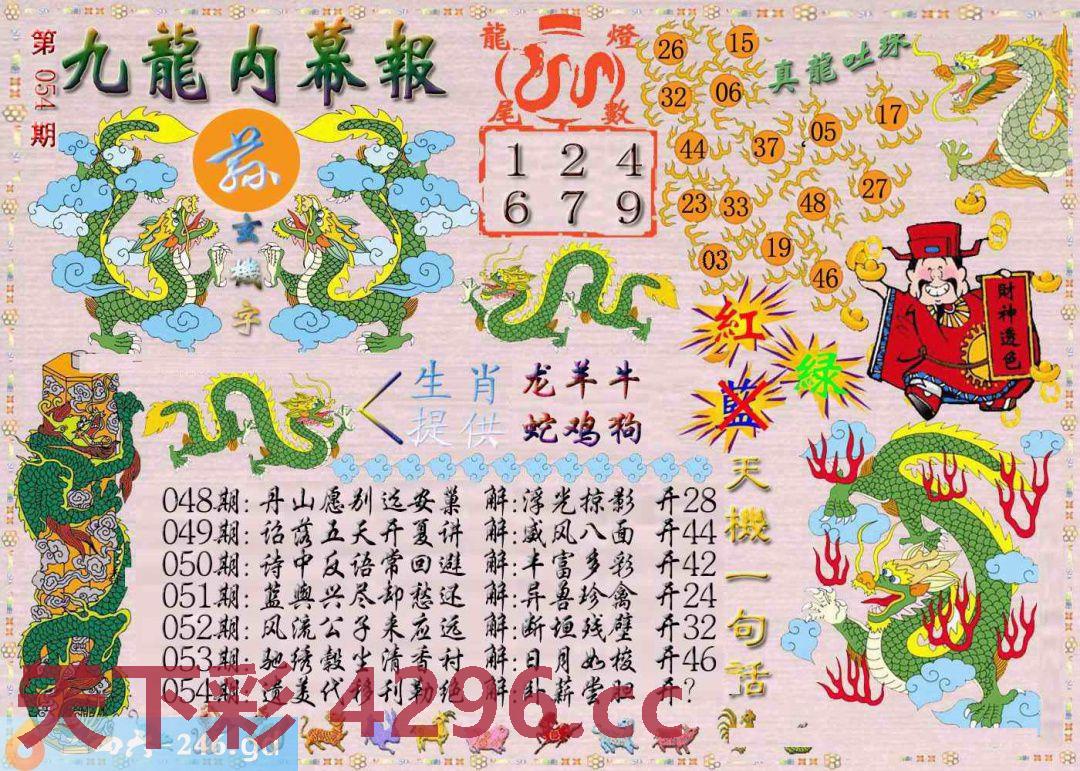 第054期
九龍内幕報
龍燈
尾數
1 2 4
6 7 9
真龍吐珠
26 15
32 06
44 37 05 17
23 33 48 27
03 19 46
玄機字
財神透色
紅
藍
绿
生肖 龙羊牛
提供 蛇鸡狗
天機一句话
048期:丹山愿别远安巢 解:浮光掠影 开28
049期:诏落五天开夏讲 解:威风八面 开44
050期:诗中反语常回避 解:丰富多彩 开42
051期:蓝舆兴尽却愁还 解:异兽珍禽 开24
052期:风流公子来应远 解:断垣残壁 开32
053期:驰绣毂生清香村 解:日月如梭 开46
054期:遗美代移刊勒绝 解:卧薪尝胆 开?
天下彩 4296.cc
=246.gd